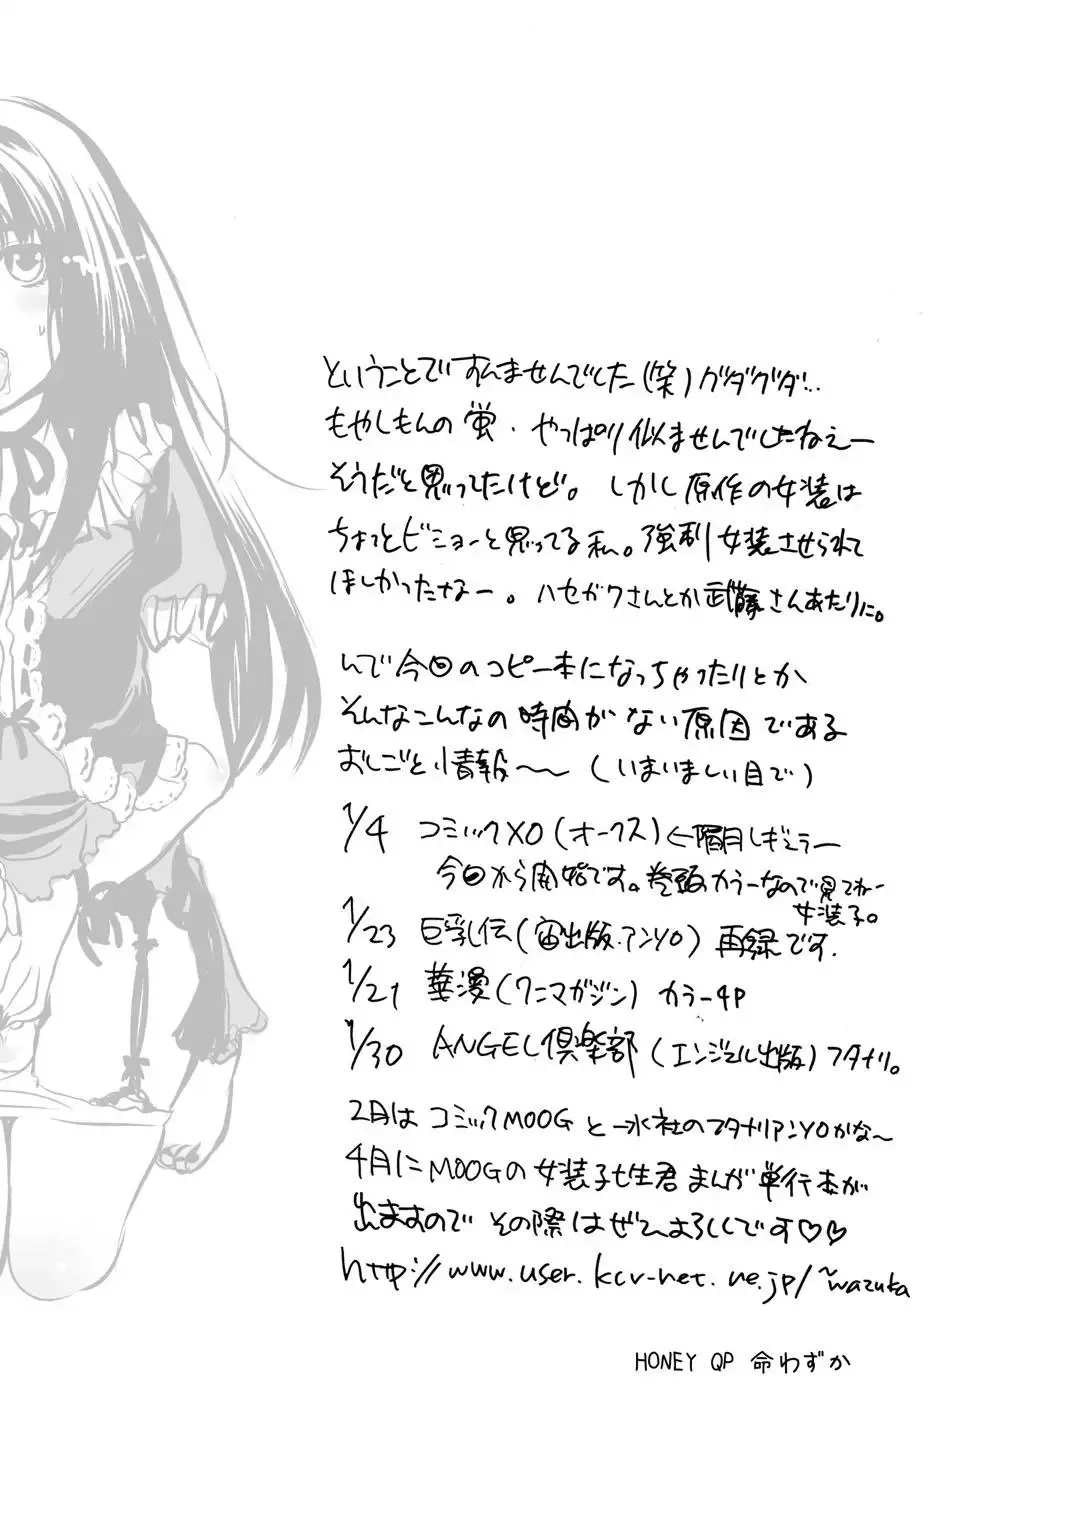 ということですんませんでした(笑)グダグダ…
もやしもんの蛍・やっぱり似ませんでしたねぇー
そうだと思ってたけど。しかし原作の女装は
ちょっとビミョーと思ってる私。強制女装させられて
ほしかったなー。ハセガワさんとか武藤さんあたりに。
んで今回のコピー本になっちゃったりとか
そんなこんなの時間がない原因である
おしごと情報〜〜(いまいましい目で)
1/4 コミックXO(オークス)←隔月レギュラー
今回から開始です。巻頭カラーなので見てねー
女装子。
1/23 巨乳伝(宙出版・アンソロ)再録です.
1/21 華漫(ワニマガジン)カラー4P
1/30 ANGEL倶楽部(エンジェル出版)フタナリ。
2月はコミックMOOGと一水社のフタナリアンソロかな〜
4月にMOOGの女装子七生君まんが単行本が
出ますのでその際はぜひよろしくです♡♡
http://www.user.kcv-net.ne.jp/~wazuka
HONEY QP 命わずか